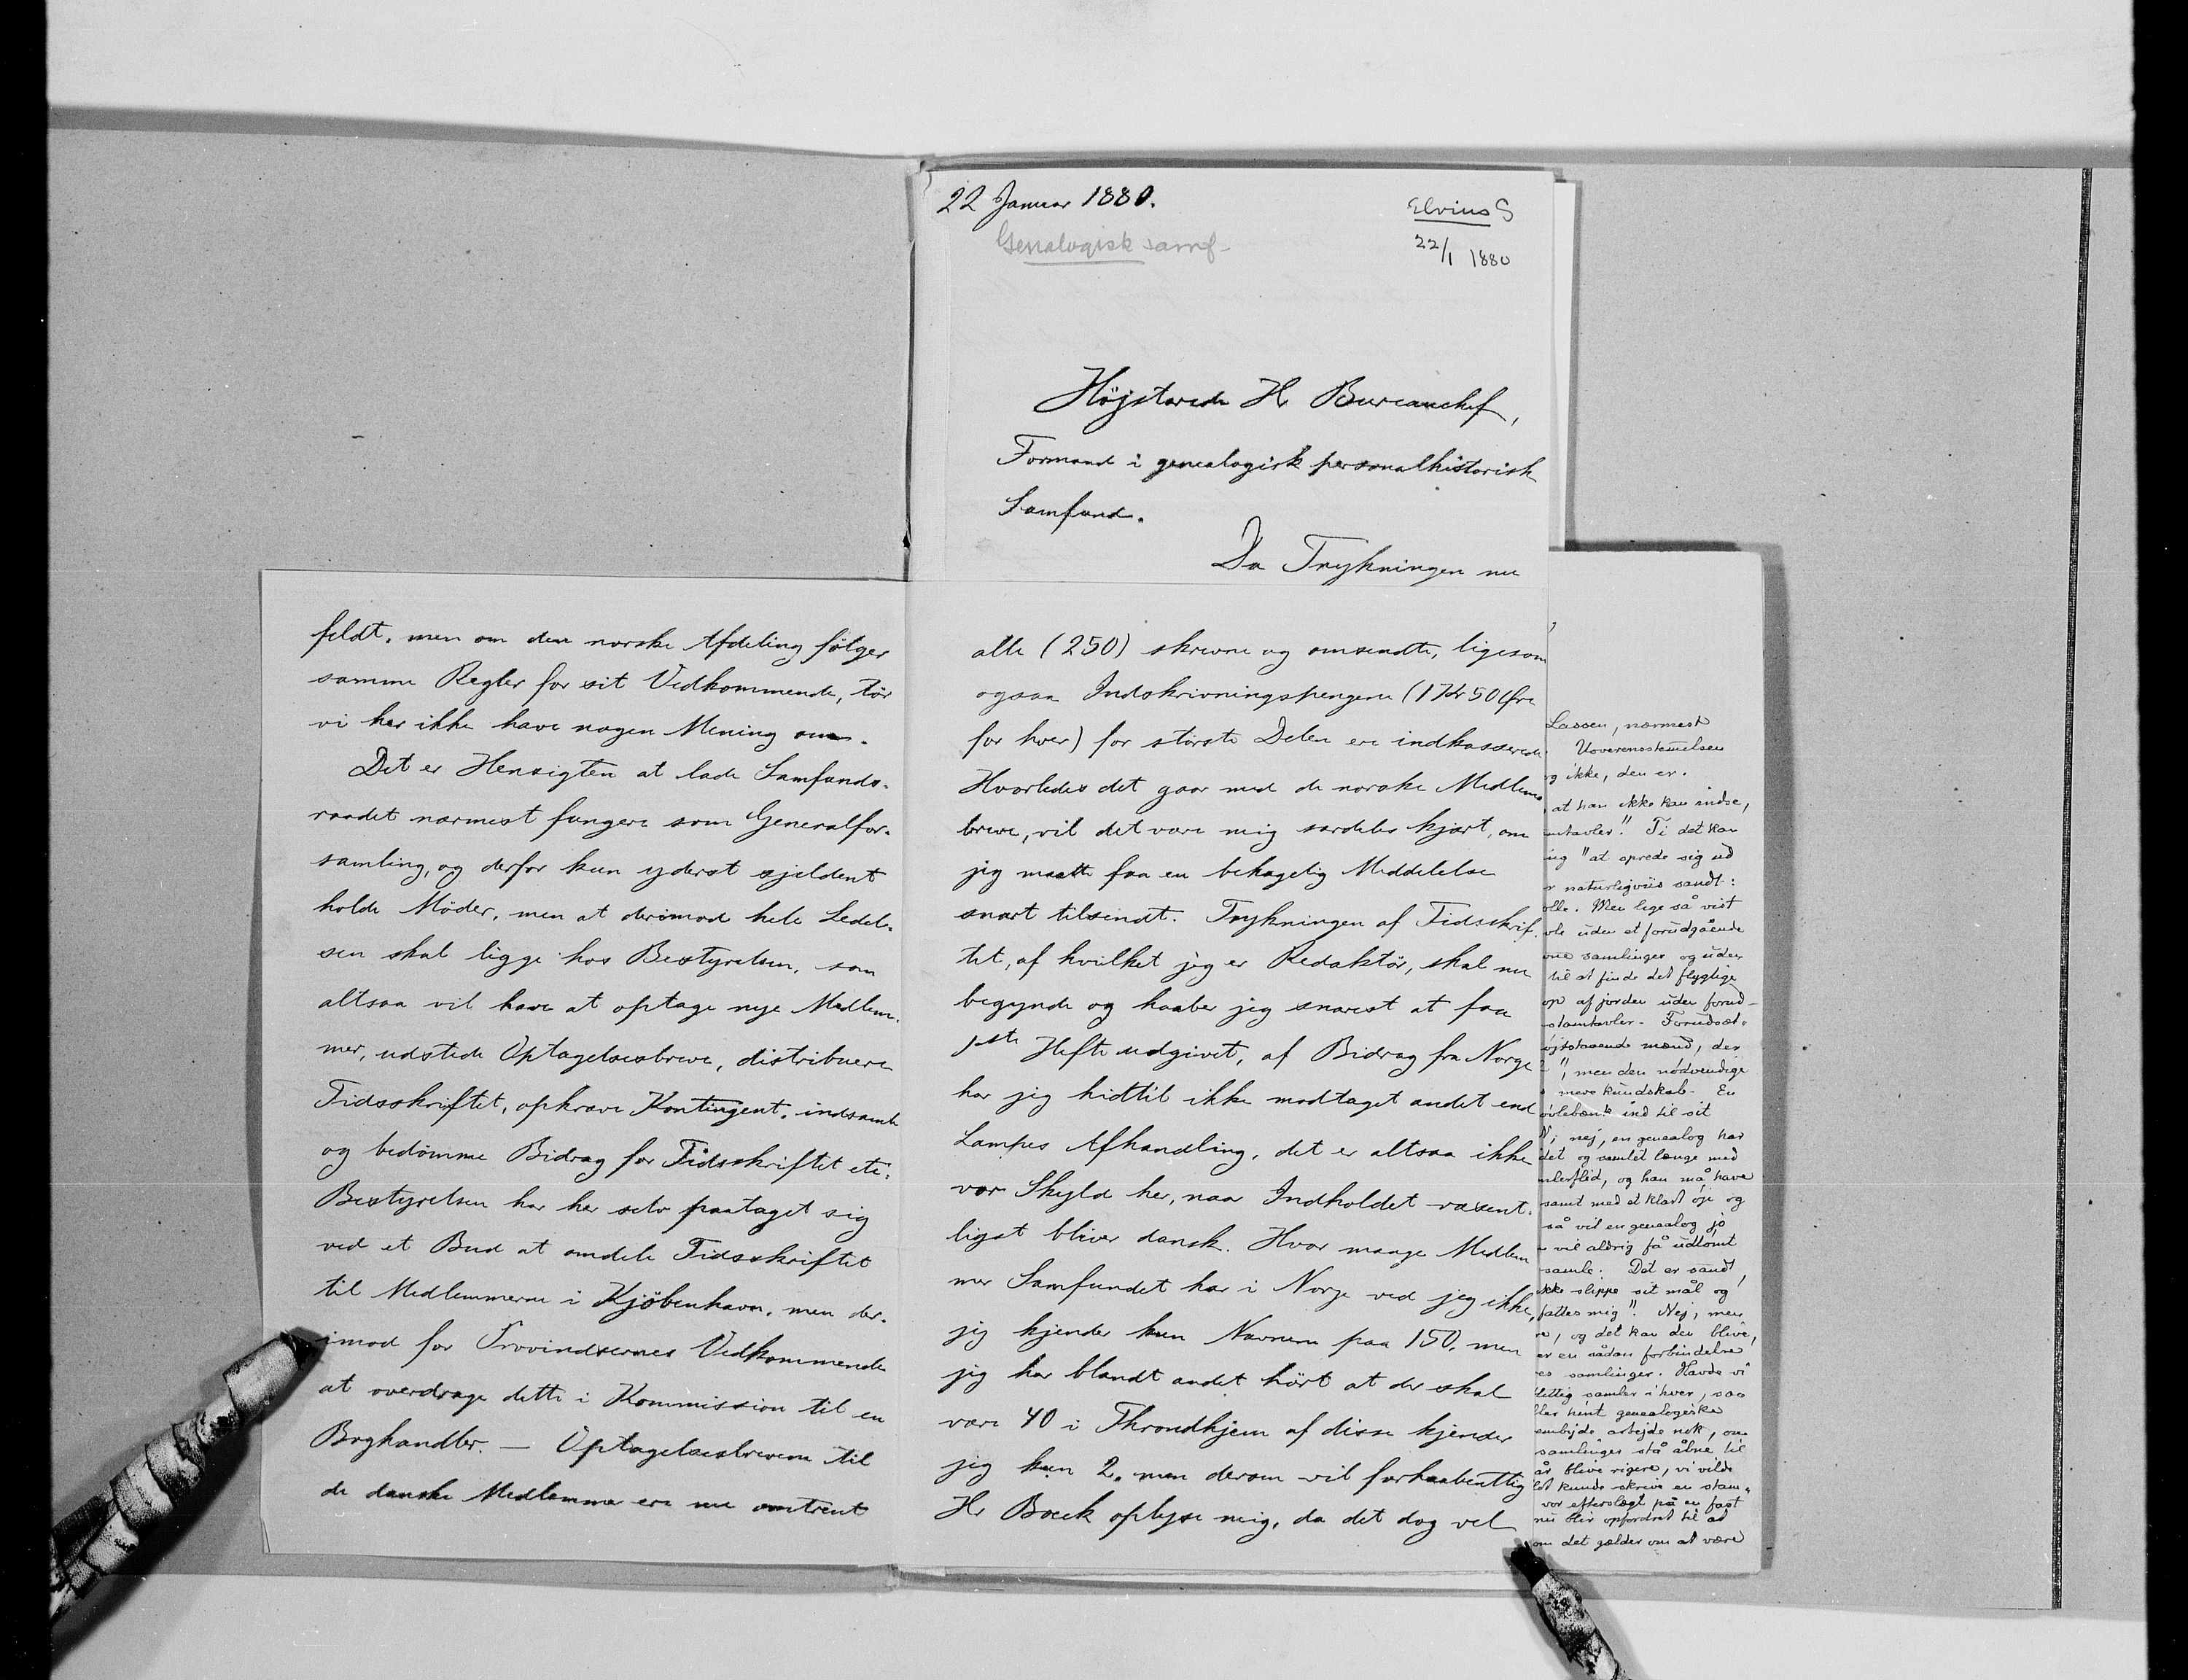 22 Januar 1880.
Genalogisk samf-
Elvius S
22/1 1880
Höjstærede Hr Bureauchef,
Formand i genealogisk personalhistorisk
Samfund.
Da Trykningen nu
feldt, men om den norske Afdeling fölger
samme Regler for sit Vedkommende, tör
vi her ikke have nogen Mening om.
Det er Hensigten at lade Samfunds-
raadet nærmest fungere som Generalfor-
samling, og derfor kun yderst sjeldent
holde Möder, men at derimod hele Ledel-
sen skal ligge hos Bestyrelsen, som
altsaa vil have at optage nye Medlem-
mer, udstede Optagelsesbreve, distribuere
Tidsskriftet, opkræve Kontingent, indsamle
og bedömme Bidrag for Tidsskriftet etc.
Bestyrelsen har her selv paataget sig
ved et Bud at omdele Tidsskriftet
til Medlemmerne i Kjöbenhavn, men der-
imod for Provindsernes Vedkommende
at overdrage dette i Kommission til en
Boghandler. — Optagelsesbrevene til
de danske Medlemmer ere nu omtrent
alle (250) skrevne og omsendte, ligesom
ogsaa Indskrivningspengene (1 Kr 50 Øre
for hver) for störste Delen ere indkasserede
Hvorledes det gaar med de norske Medlems
breve, vil det være mig særdeles kjært, om
jeg maatte faa en behagelig Meddelelse
snart tilsendt. Trykningen af Tidsskrif-
tet, af hvilket jeg er Redaktör, skal nu
begynde og haaber jeg snarest at faa
1ste Hefte udgivet, af Bidrag fra Norge
har jeg hidtil ikke modtaget andet end
Lampes Afhandling, det er altsaa ikke
vor Skyld her, naar Indholdet væsent-
ligst bliver dansk. Hvor mange Medlem
mer Samfundet har i Norge ved jeg ikke,
jeg kjender kun Navnene paa 150, men
jeg har blandt andet hört at der skal
være 40 i Throndhjem af disse kjender
jeg kun 2, men derom vil forhaabentlig
Hr Boeck oplyse mig, da det dog vel
Lassen, nærmest
Uoverensstemelsen
og ikke, den er.
, at han ikke kan indse,
mtavler". Ti det kan
ing "at sprede sig ud
r naturligviis sandt:
olle. Men lige så vist
vle uden et forudgående
vne samlinger og uden
til at finde det flygtige
op af jorden uden forud-
stamtavler. Forudsæt-
øjtstaaende mænd, der
", men den nödvendige
s mere kundskab. En
øvlebænk ind til sit
; nej, en genealog har
det og samlet længe med
mlerflid, og han må have
samt med et klart øje og
så vil en genealog jo
vil aldrig få udtømt
samle. Det er sandt,
ikke slippe sit mål og
fattes mig". Nej, men
re, og det kan den blive,
er en sådan forbindelse
es samlinger. Havde vi
flittig samler i hver, saa
ller hint genealogiske
embejde arbejde nok, om
samlinger stå åbne til
år blive rigere, vi vilde
let kunde skrive en stam-
vor efterslægt på en fast
nu blir opfordret til at
om det gælder om at være